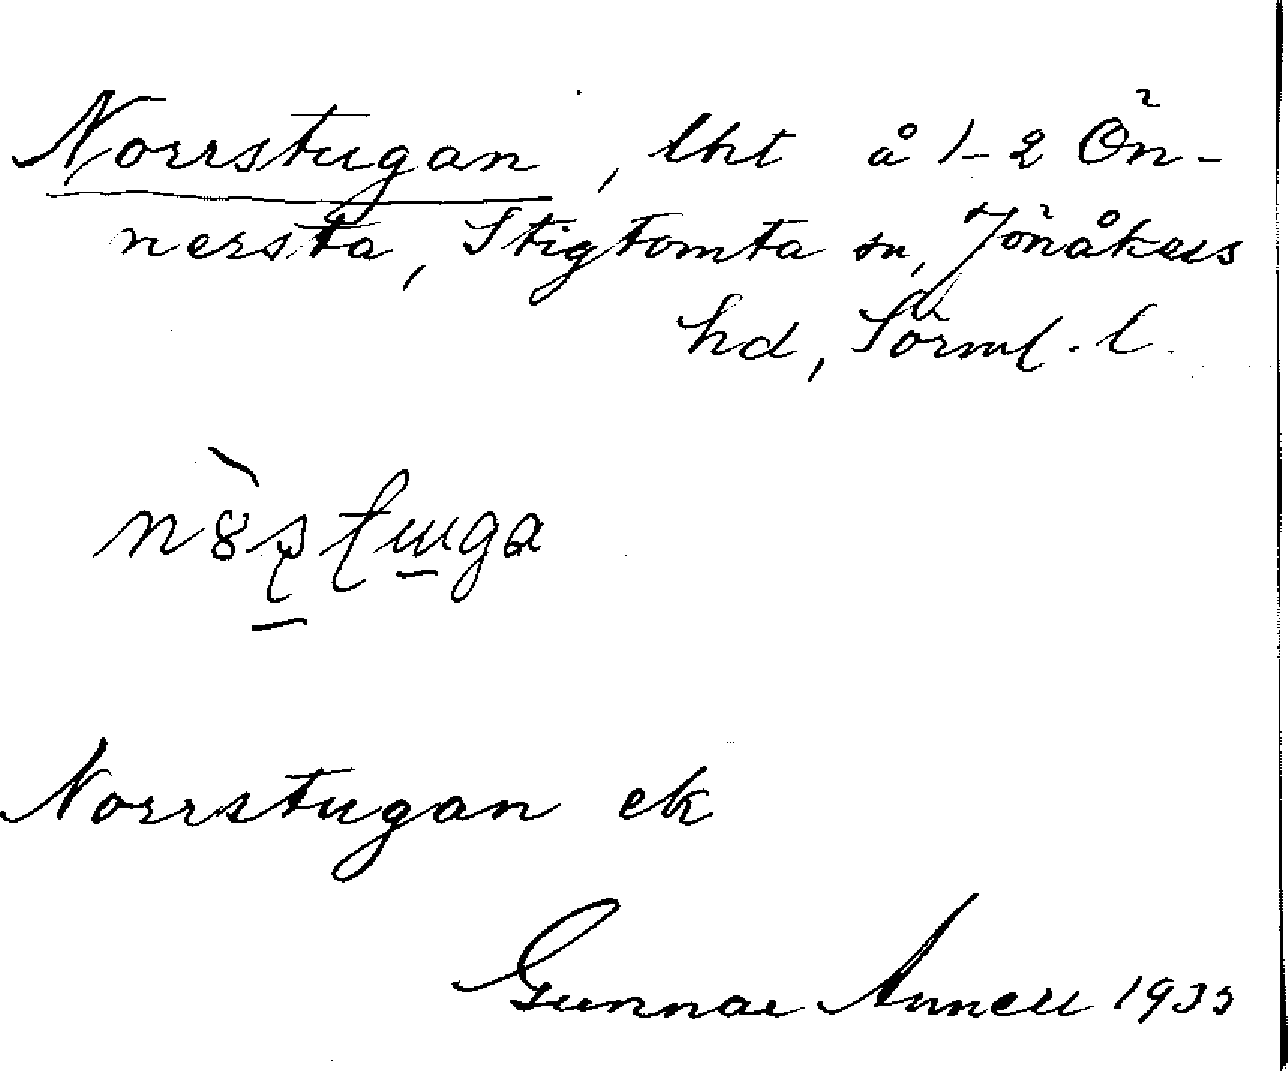 Norrstugan, lht å 1-2 Ön-
nersta, Stigtomta sn, Jönåkers
hd, Sörml. l.
Norrstugan ek
Gunnar Annell 1935